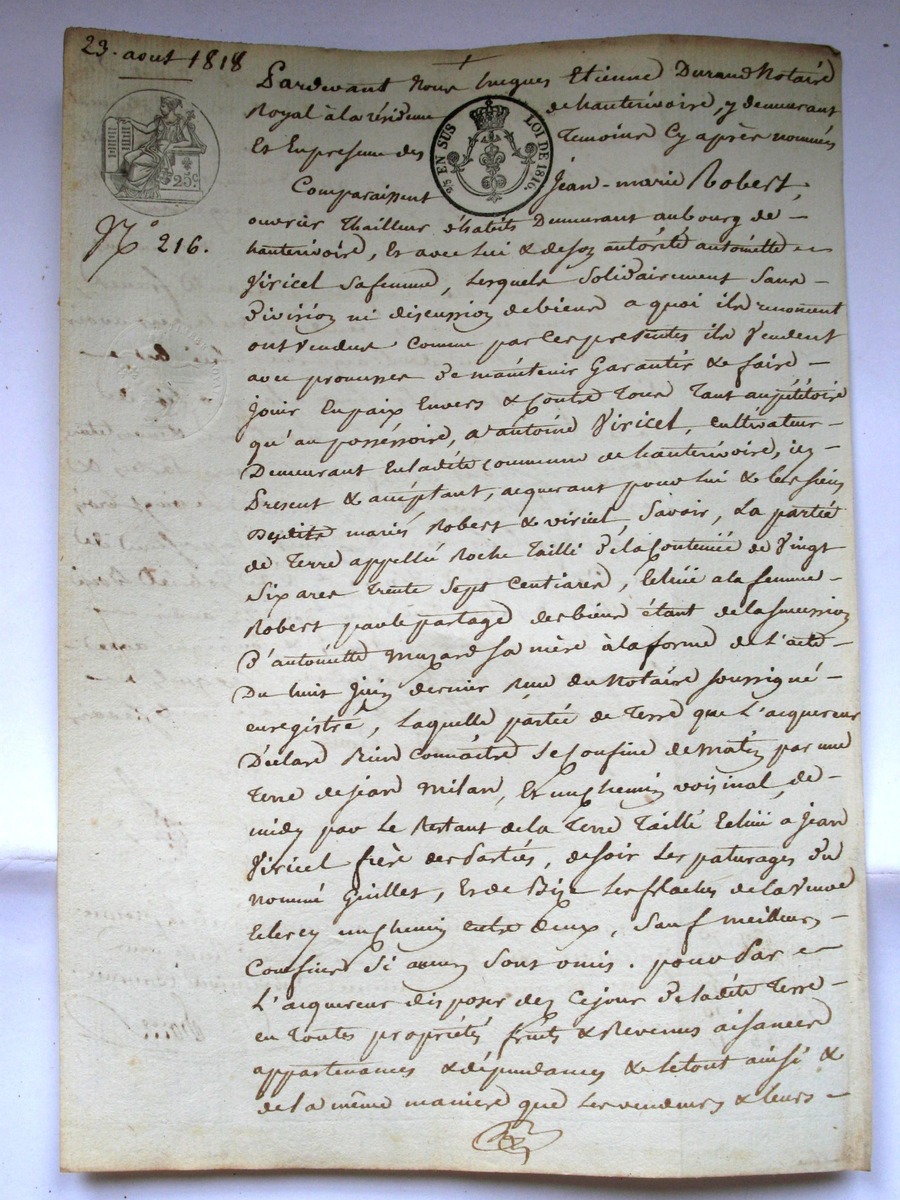 23. aout 1818
Pardevant Nous hugues Etienne Durand Notaire
Royal à la résidence de hauterivoire, y demeurant
Et En presence des Temoins Cy après nommés
25 EN SUS LOI DE 1816.
25c
Comparaissent Jean-marie Robert,
N° 216.
ouvrier Thailleur d'habits Demeurant au bourg de -
hauterivoire, Et avec lui & de son autorité antoinette
Viricel sa femme, Lesquels Solidairement Sans
Division ni discussion de biens a quoi ils renoncent
ont Vendus Comme par Ces presentes ils Vendent
avec promesse De maintenir Garantir & faire -
Jouir En paix Envers & Contre Tous Tant au pétitoire
qu'au possessoire, a antoine Viricel, cultivateur -
Demeurant En la dite Commune de hauterivoire, icy
Present & acceptant, acquerant pour lui & les siens
Desdits mariés Robert & viricel Savoir, La partie
de Terre appellée Roche Taillé De la Contenue de Vingt
Six ares Trente Sept Centiares, Echue a la femme -
Robert par le partage des biens étant de la succession
D'antoinette Muzard Sa mère à la forme de L'acte -
Du huit Juin dernier Reçu du Notaire soussigné -
enregistré, Laquelle partie de Terre que L'acquereur
Déclare Bien Connaitre Se Confine de Matin par une
Terre de jean Milan, Et un chemin voisinal, de -
midy par Le Restant de la Terre Taillé Echue a Jean
Viricel frère des Parties, de soir Les paturages Du
nommé Guillet, Et de Bize Les flaches de la Veuve
un chemin entre deux, Sauf meilleurs -
Confins Si aucuns Sont omis. pour Par
L'acquereur disposer dez Ce jour De la dite Terre -
en Toutes propriétés fruits & Revenus aisances
appartenances & dépendances & le tout ainsi &
de la même manière que Les vendeurs & leurs -